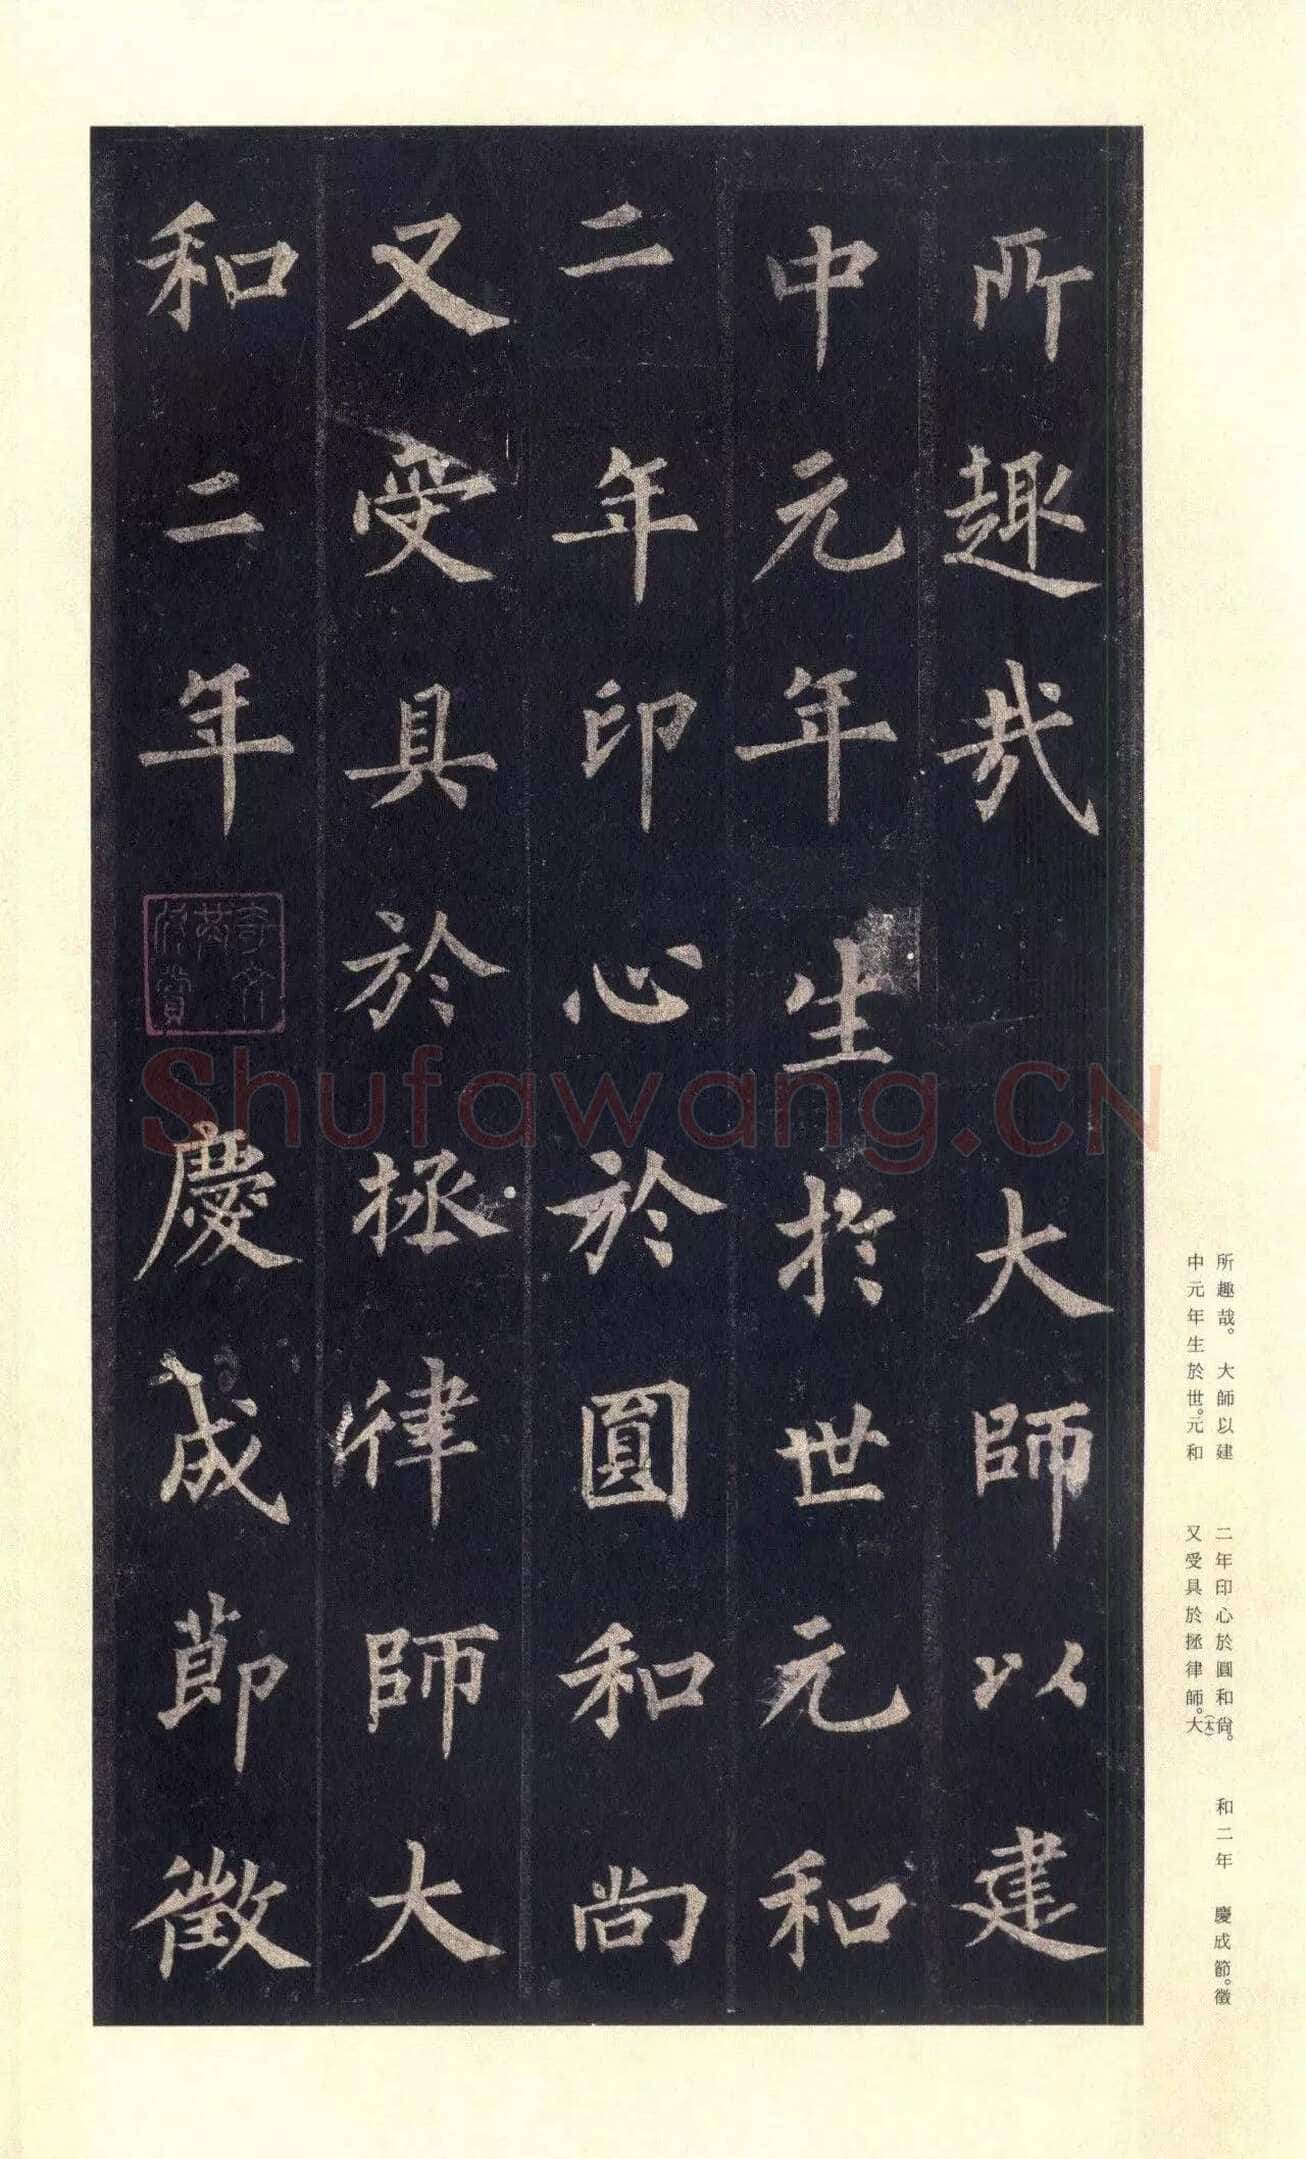 所趣哉　大師以建
中元年生於世元和
二年印心於圓和尚
又受具於拯律師大
和二年　慶成節徵
奇文共欣賞
Shufawang.CN
所趣哉。　大師以建
中元年生於世。元和
二年印心於圓和尚。
又受具於拯律師。大(太)
和二年　慶成節。徵